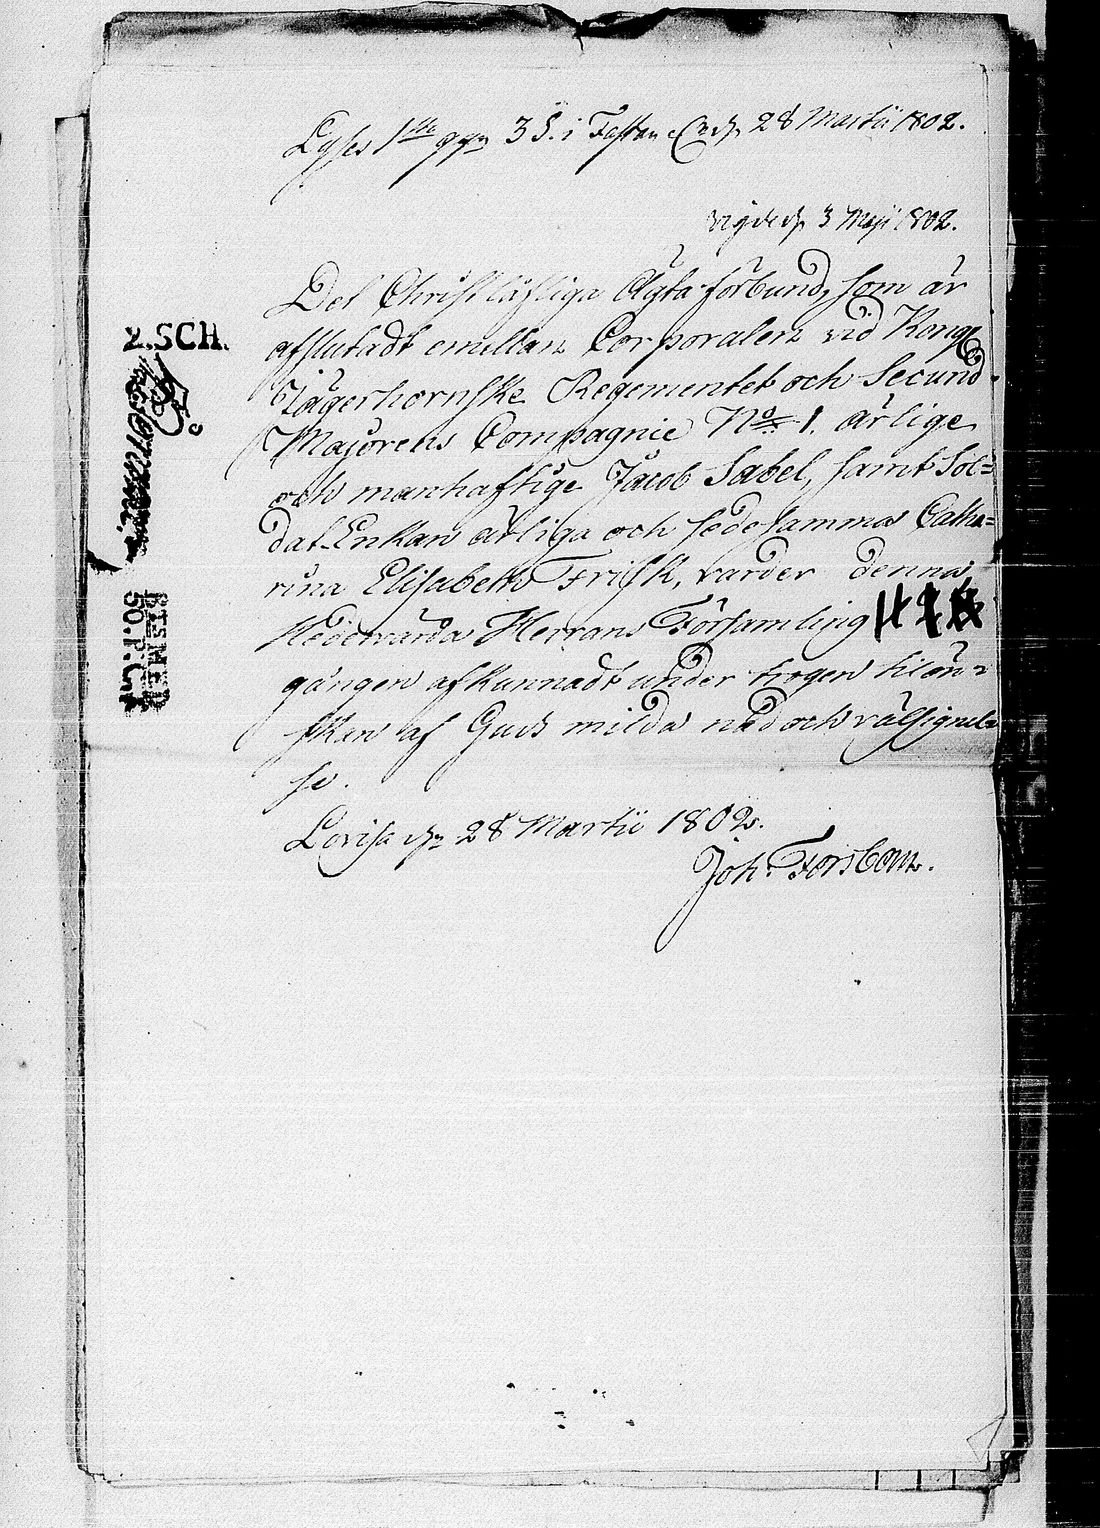 Lyses 1sta ggn 3 S. i Fastan 28 Martii 1802.
vigde d. 3 Maji 1802.
Det Christlåfliga Ägta förbund, som är
afslutadt emellan Corporalen vid Kongl
Jägerhornske Regementet och Secund
Majorens Compagnie No 1. ärlige
och manhaftige Jacob Sabel, samt Sol=
dat-Enkan ärliga och sedesamma Catha=
rina Elisabeth Frisk, varder denna
Hedervärda Herrans Församling
gången afkunnadt under trogen tilön=
skan af Guds milda nåd och välsignel=
se.
Lovisa d. 28 Martii 1802.
Joh. Forsbom.
2.SCH.
STSMED
50.P:C: